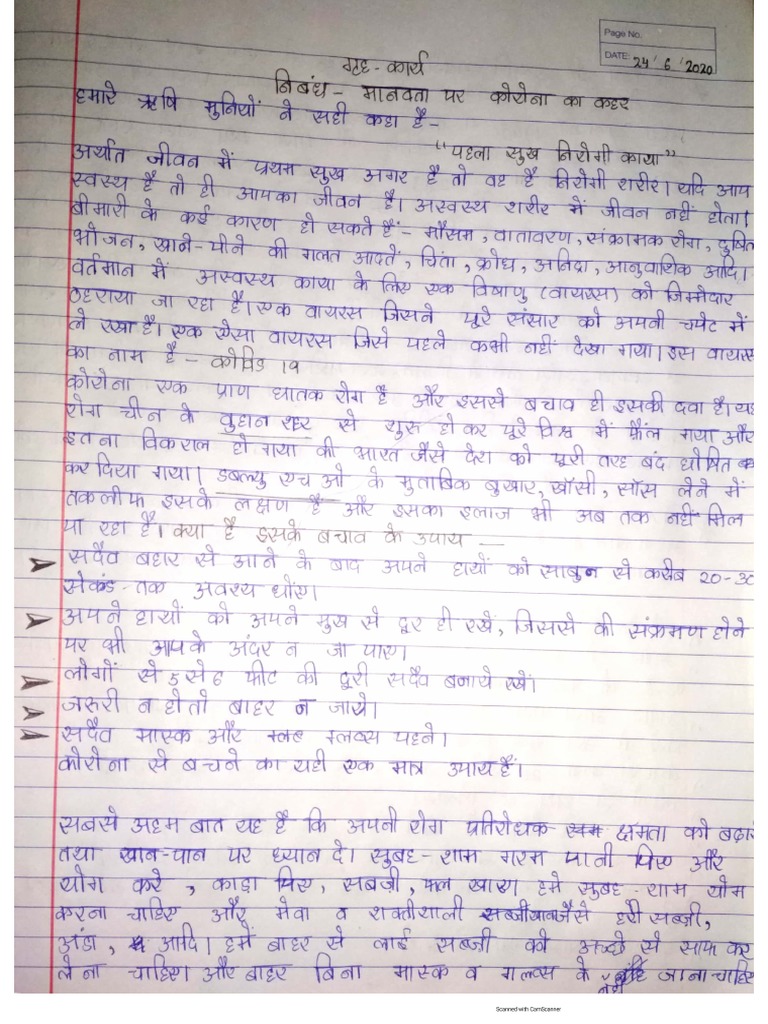 Page No.
DATE: 24/6/2020
गृह-कार्य
निबंध - मानवता पर कोरोना का कहर
हमारे ऋषि मुनियों ने सही कहा है -
"पहला सुख निरोगी काया"
अर्थात जीवन में प्रथम सुख अगर है तो वह है निरोगी शरीर। यदि आप
स्वस्थ है तो ही आपका जीवन है। अस्वस्थ शरीर में जीवन नहीं होता।
बीमारी के कई कारण हो सकते हैं:- मौसम, वातावरण, संक्रामक रोग, दुषित
भोजन, खाने-पीने की गलत आदतें, चिंता, क्रोध, अनिद्रा, आनुवाशिक आदि।
वर्तमान में अस्वस्थ काया के लिए एक विषाणु (वायरस) को जिम्मेदार
ठहराया जा रहा है। एक वायरस जिसने पूरे संसार को अपनी चपेट में
ले रखा है। एक ऐसा वायरस जिसे पहले कभी नहीं देखा गया। इस वायरस
का नाम है - कोविड 19
कोरोना एक प्राण घातक रोग है और इससे बचाव ही इसकी दवा है। यह
रोग चीन के वुहान शहर से शुरु होकर पूरे विश्व में फैल गया और
इतना विकराल हो गया की भारत जैसे देश को पूरी तरह बंद घोषित
कर दिया गया। डबल्यु एच ओ के मुताबिक बुखार, खाँसी, साँस लेने में
तकलीफ इसके लक्षण है और इसका इलाज भी अब तक नहीं मिल
पा रहा है। क्या है इसके बचाव के उपाय —
➤ सदैव बहार से आने के बाद अपने हाथों को साबुन से करीब 20-30
सेकंड तक अवश्य धोंए।
➤ अपने हाथों को अपने मुख से दूर ही रखें, जिससे की संक्रमण होने
पर भी आपके अंदर न जा पाए।
➤ लोगों से 5 से 6 फीट की दूरी सदैव बनाये रखें।
➤ जरुरी न हो तो बाहर न जाये।
➤ सदैव मास्क और ग्लव्स पहने।
कोरोना से बचने का यही एक मात्र उपाय हैं।
सबसे अहम बात यह है कि अपनी रोग प्रतिरोधक क्षमता को बढ़ाए
तथा खान-पान पर ध्यान दे। सुबह-शाम गरम पानी पिए और
योग करे, काढ़ा पिए, सबजी, फल खाए। हमे सुबह-शाम योग
करना चाहिए और मेवा व शक्तीशाली जैसे हरी सब्ज़ी,
अंडा, आदि। हमें बाहर से लाई सब्ज़ी को अच्छे से साफ कर
लेना चाहिए। और बाहर बिना मास्क व गल्वस के नहीं जाना चाहिए
Scanned with CamScanner